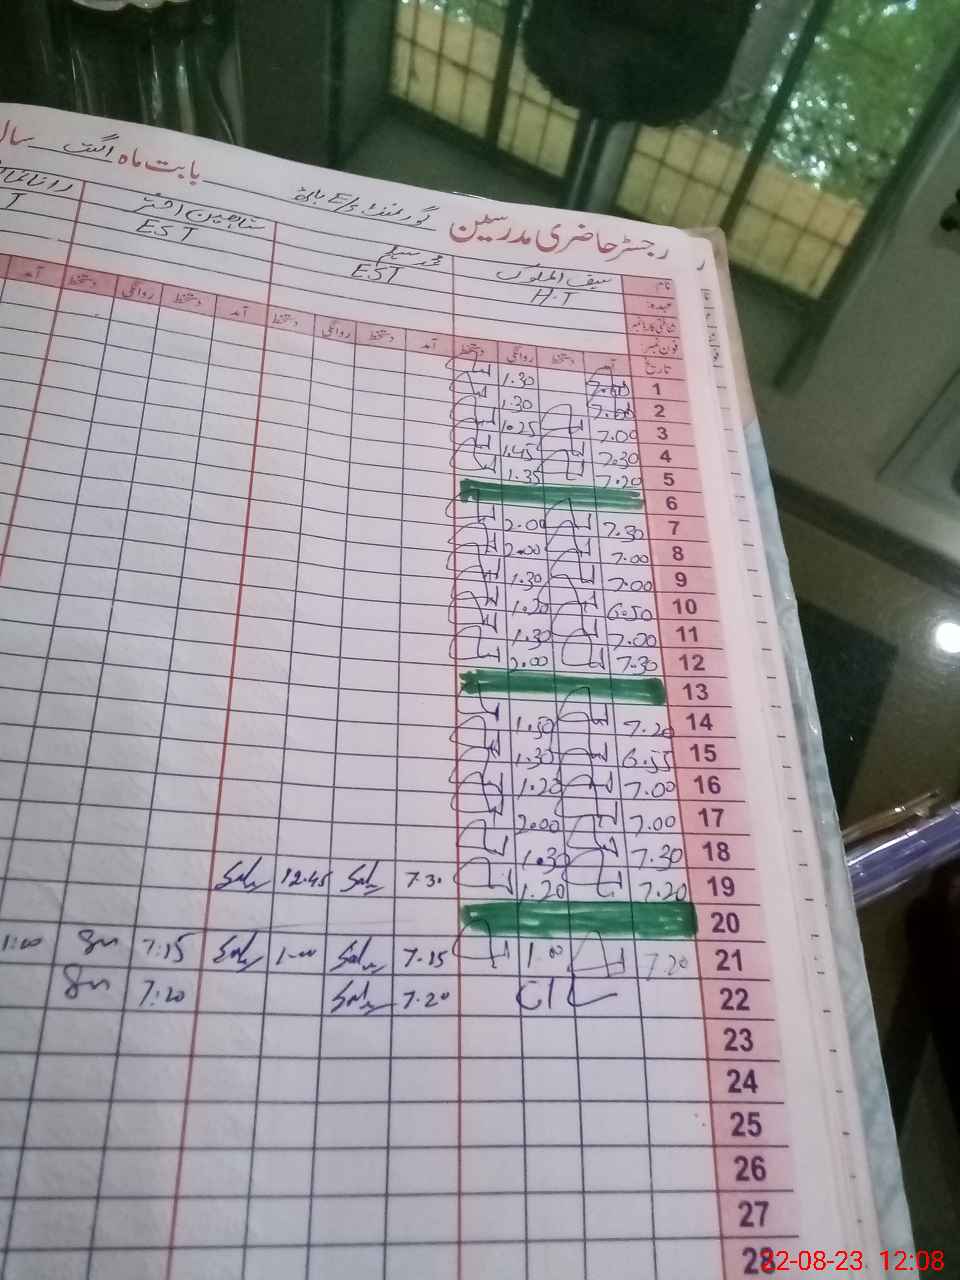 رجسٹر حاضری مدرسین
بابت ماہ اگست سال
نام سیف الملوک
عہدہ: H.T EST EST T
شناختی کارڈ نمبر
فون نمبر
تاریخ آمد دستخط روانگی دستخط آمد دستخط روانگی دستخط آمد دستخط روانگی دستخط آمد
1 7.00 1.30
2 7.00 1.30
3 7.00 1.25
4 7.30 1.45
5 7.20 1.35
6
7 7.30 2.00
8 7.00 2.00
9 7.00 1.30
10 6.50 1.20
11 7.00 1.30
12 7.30 2.00
13
14 7.20 1.30
15 6.55 1.30
16 7.00 1.20
17 7.00 2.00
18 7.30 1.30
19 7.20 1.20 7.30 12.45
20
21 7.20 1.00 7.15 1.00 7:15 1:00
22 CL 7.20 7:20
23
24
25
26
27
28
22-08-23 12:08